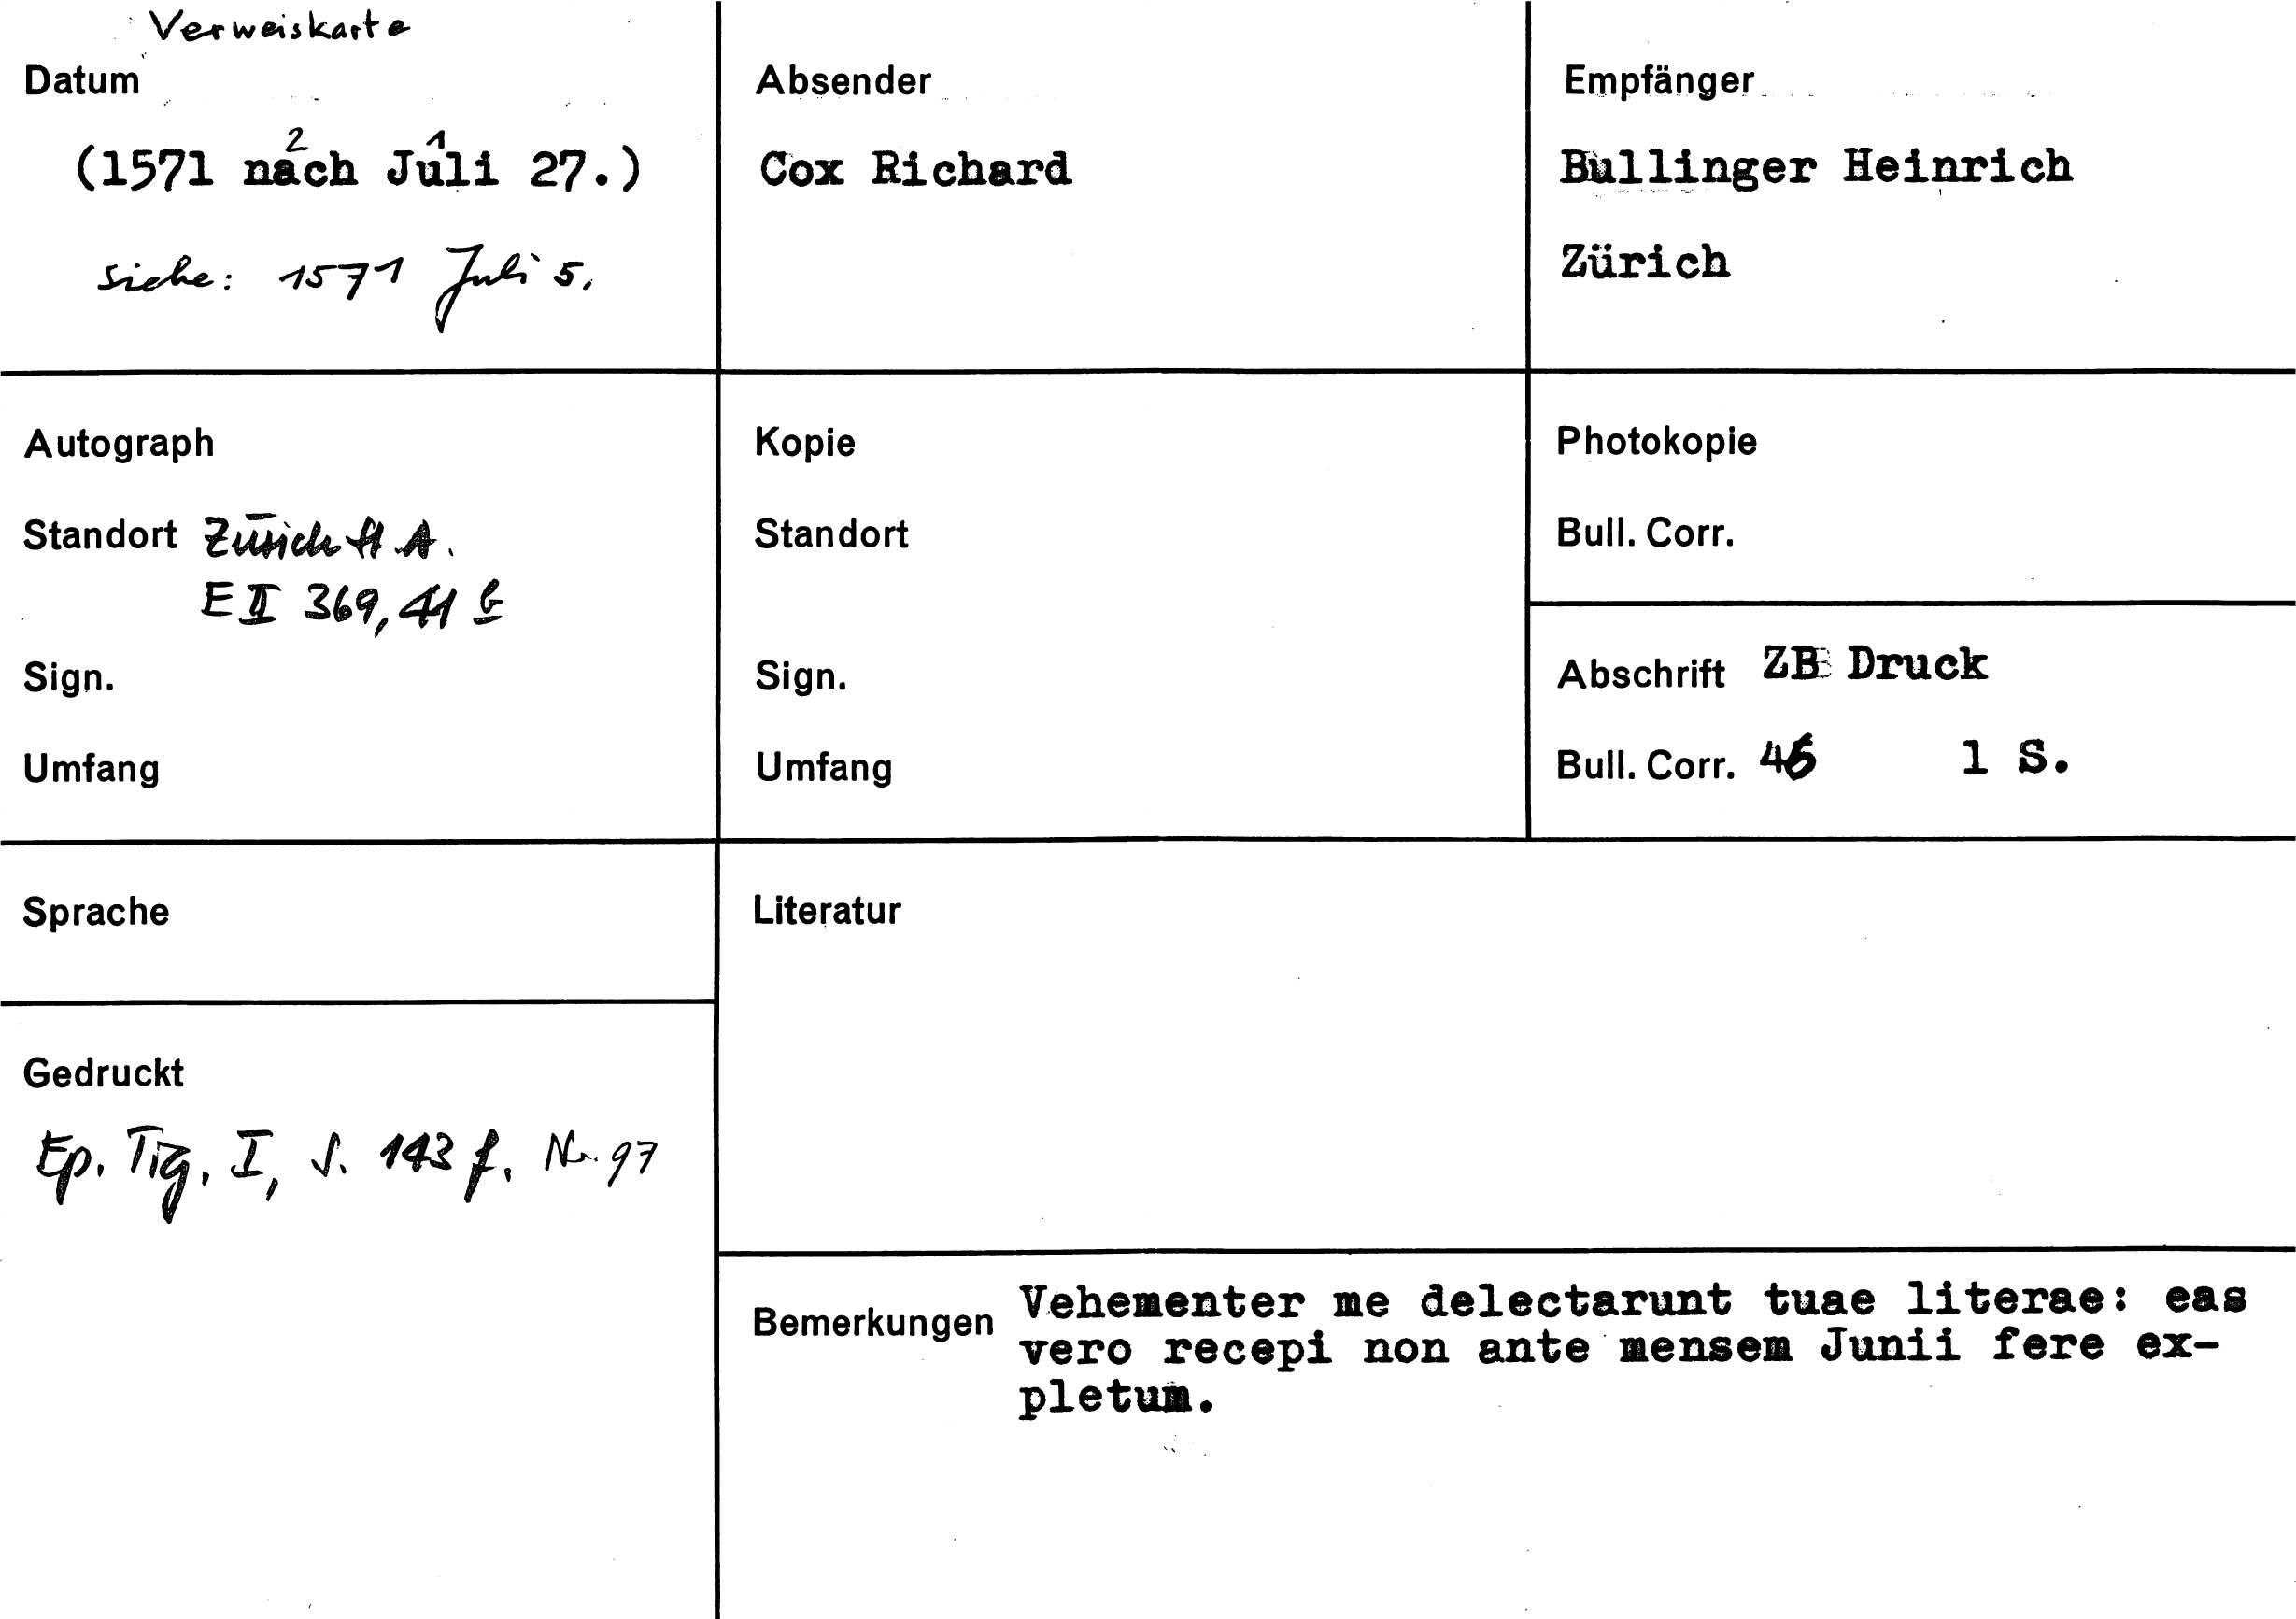 Verweiskarte
Datum
2 1
(1571 nach Juli 27.)
siehe: 1571 Juli 5.
Absender
Cox Richard
Empfänger
Bullinger Heinrich
Zürich
Autograph
Standort Zürich StA.
E II 369, 41 b
Sign.
Umfang
Kopie
Standort
Sign.
Umfang
Photokopie
Bull. Corr.
Abschrift ZB Druck
Bull. Corr. 1 S.
Sprache
Literatur
Gedruckt
Ep. Tig. I, S. 143 f. Nr. 97
Bemerkungen Vehementer me delectarunt tuae literae: eas
vero recepi non ante mensem Junii fere ex-
pletum.